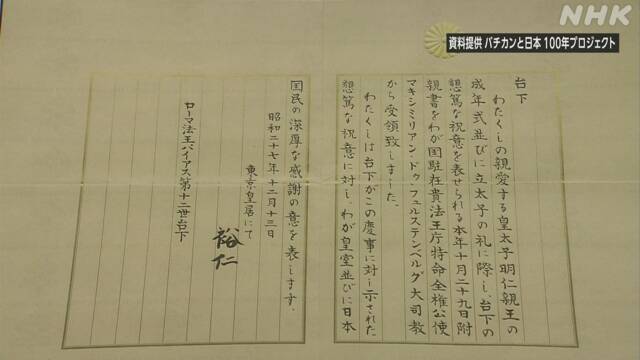 NHK
資料提供 バチカンと日本 100年プロジェクト
台下
わたくしの親愛する皇太子明仁親王の
成年式並びに立太子の礼に際し、台下の
懇篤な祝意を表せられる本年十月二十九日附
親書をわが国駐在貴法王庁特命全権公使
マキシミリアン・ドゥ・フュルステンベルグ大司教
から受領致しました。
わたくしは台下がこの慶事に対し示された
懇篤な祝意に対し、わが皇室並びに日本
国民の深厚な感謝の意を表します。
昭和二十七年十二月十三日
東京皇居にて
裕仁
ローマ法王パイアス第十二世台下